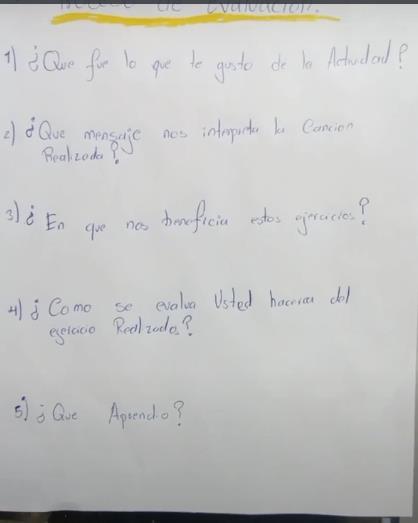 de Evaluación.
1) ¿Que fue lo que te gusto de la Actividad?
2) ¿Que mensaje nos interpreta la Cancion
Realizada?
3) ¿ En que nos beneficia estos ejercicios?
4) ¿ Como se evalua Usted hacerca del
ejercicio Realizado?
5) ¿ Que Aprendio?